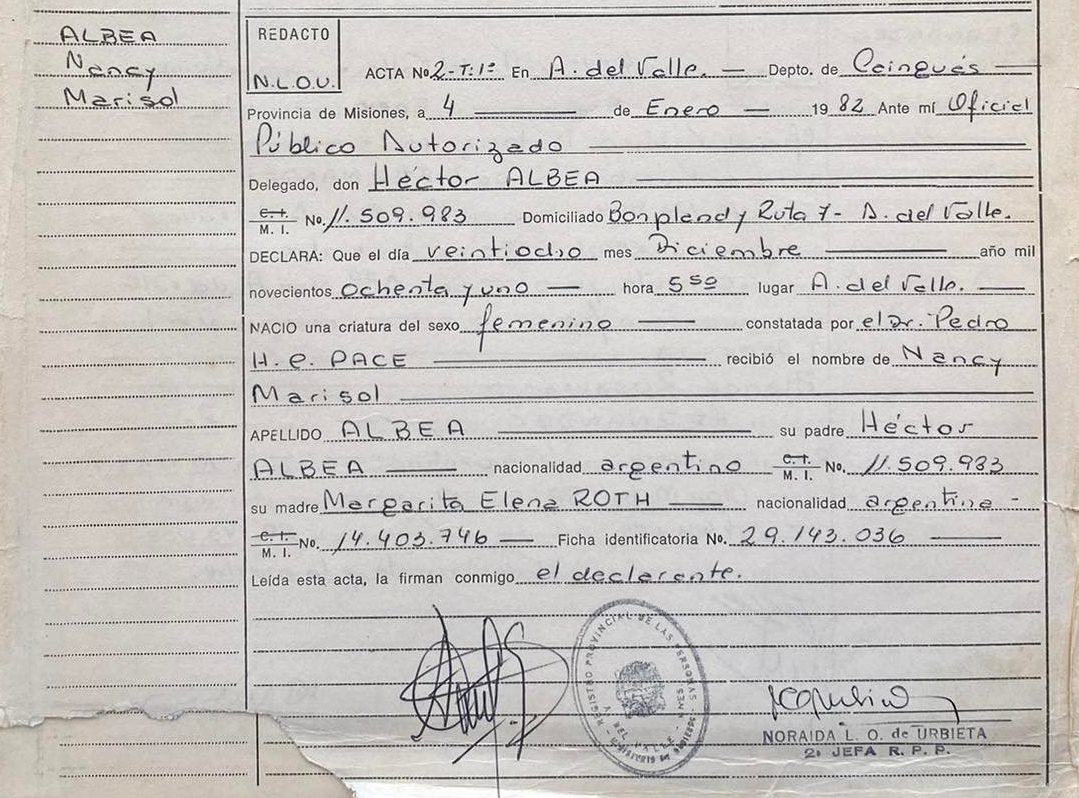 ALBEA
Nancy
Marisol
REDACTO
N.L.O.U.
ACTA No. 2-T:1º En A. del Valle. Depto. de Cainguás
Provincia de Misiones, a 4 de Enero 1982 Ante mí Oficial
Público Autorizado
Delegado, don Héctor ALBEA
C.I. M. I. No. 11.509.983 Domiciliado Bonpland y Ruta 7 - A. del Valle.
DECLARA: Que el día veintiocho mes Diciembre año mil
novecientos ochenta y uno hora 5 50 lugar A. del Valle.
NACIO una criatura del sexo femenino constatada por el Dr. Pedro
H. C. PACE recibió el nombre de Nancy
Marisol
APELLIDO ALBEA su padre Héctor
ALBEA nacionalidad argentino C.I. M. I. No. 11.509.983
su madre Margarita Elena ROTH nacionalidad argentina -
C.I. M. I. No. 14.403.746 Ficha identificatoria No. 29.143.036
Leída esta acta, la firman conmigo el declarante.
REGISTRO PROVINCIAL DE LAS PERSONAS
DEL VALLE
NORAIDA L. O. de URBIETA
2a JEFA R. P. P.